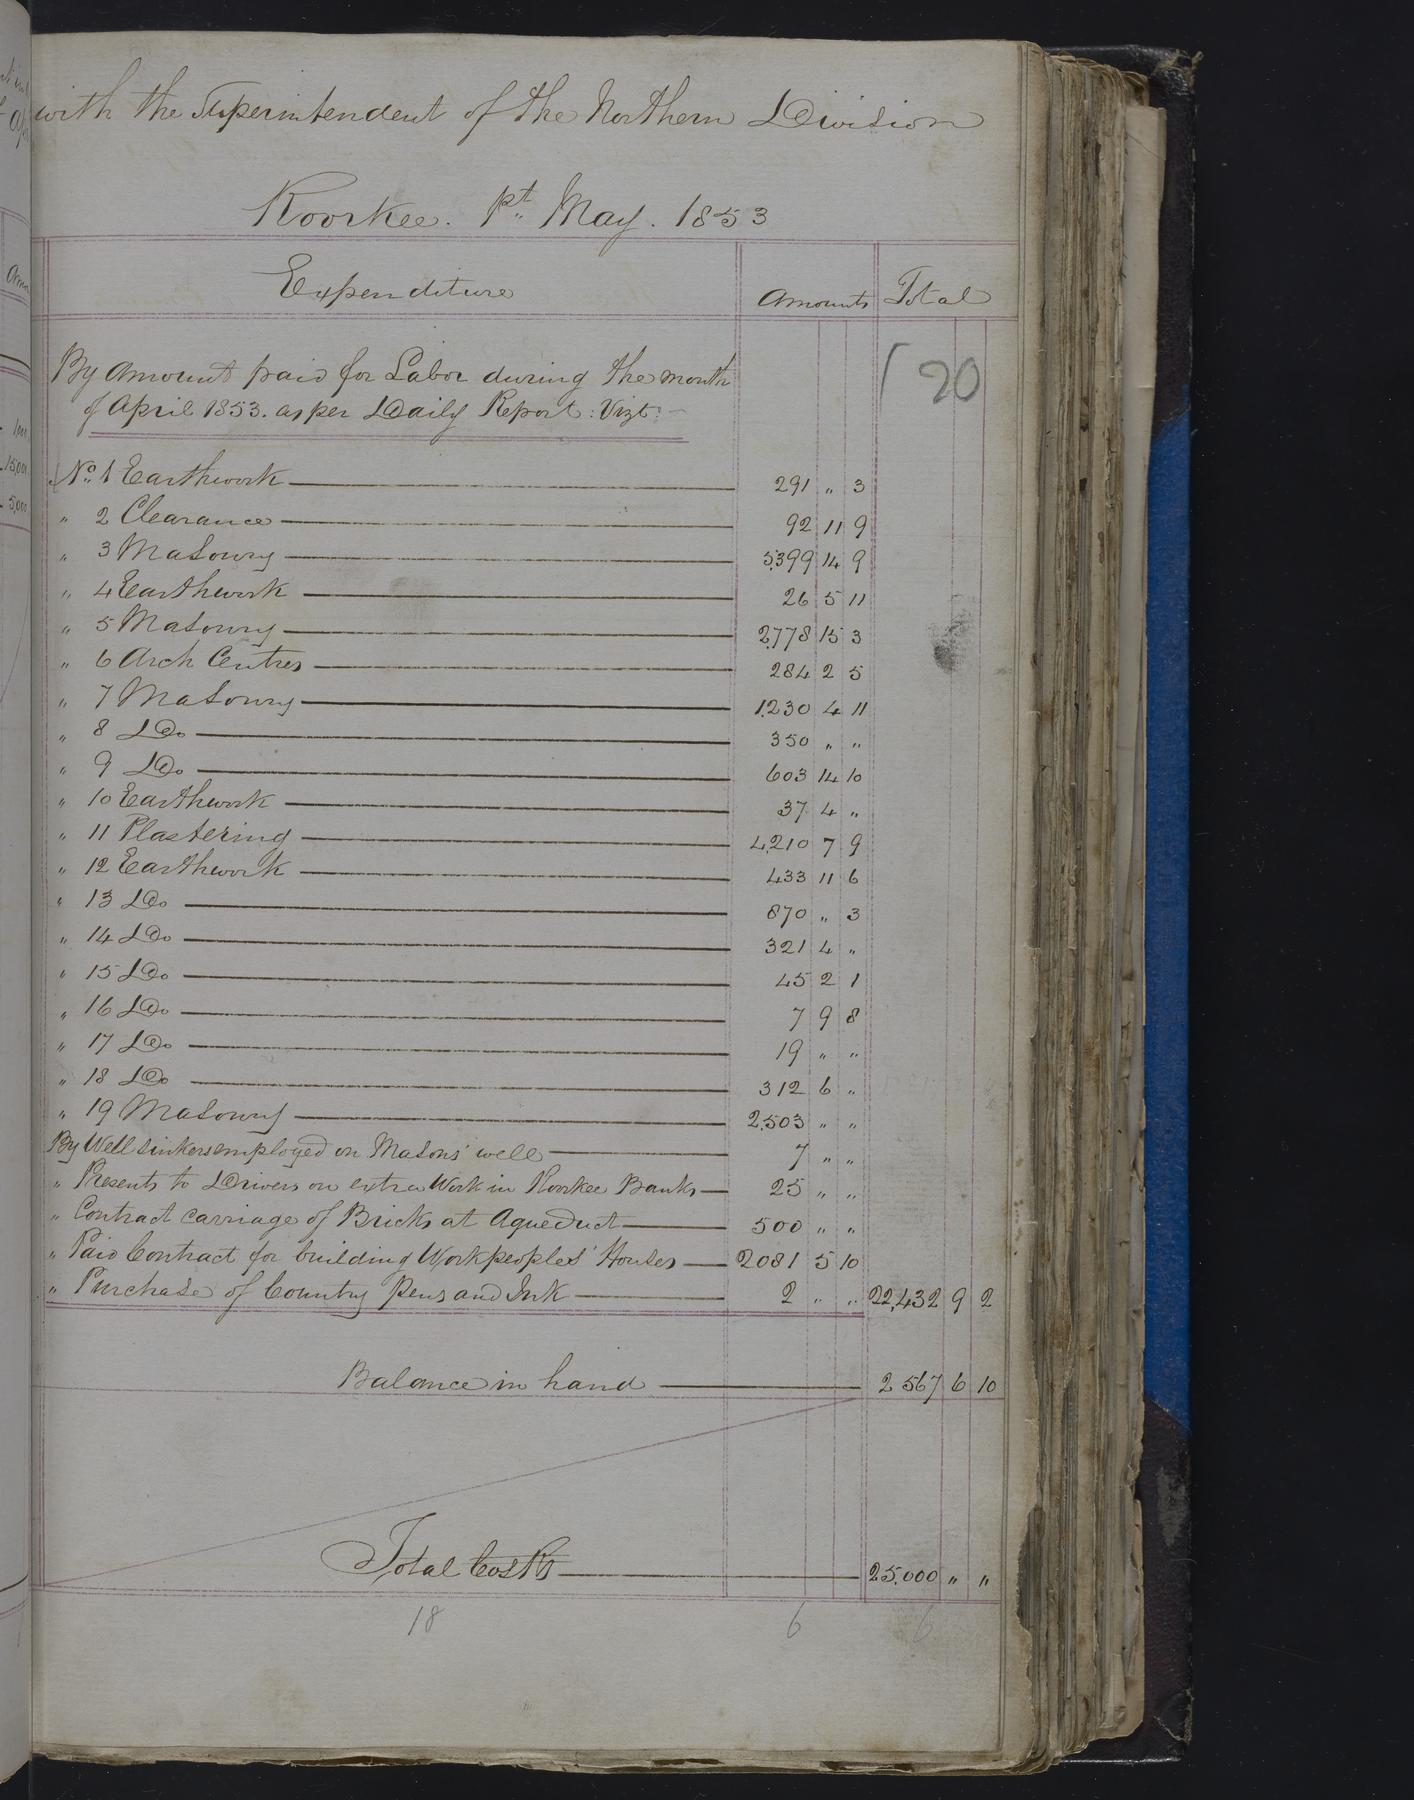 with the Superintendent of the Northern Division
Roorkee. 1st May. 1853
Expenditure Amounts Total
20
By Amount paid for Labor during the month
of April 1853. as per Daily Report: Vizt:
No. 1 Earthwork 291 " 3
" 2 Clearance 92 11 9
" 3 Masonry 5,399 14 9
" 4 Earthwork 26 5 11
" 5 Masonry 2,778 15 3
" 6 Arch Centres 284 2 5
" 7 Masonry 1,230 4 11
" 8 Do 350 " "
" 9 Do 603 14 10
" 10 Earthwork 37 4 "
" 11 Plastering 4,210 7 9
" 12 Earthwork 433 11 6
" 13 Do 870 " 3
" 14 Do 321 4 "
" 15 Do 45 2 1
" 16 Do 7 9 8
" 17 Do 19 " "
" 18 Do 312 6 "
" 19 Masonry 2,503 " "
By Well sinkers employed on Masons' well 7 " "
" Presents to Drivers on extra Work in Roorkee Banks 25 " "
" Contract carriage of Bricks at Aqueduct 500 " "
" Paid Contract for building Workpeoples' Houses 2081 5 10
" Purchase of Country Pens and Ink 2 " " 22,432 9 2
Balance in hand 2567 6 10
Total Co's Rs 25,000 " "
18 6 6